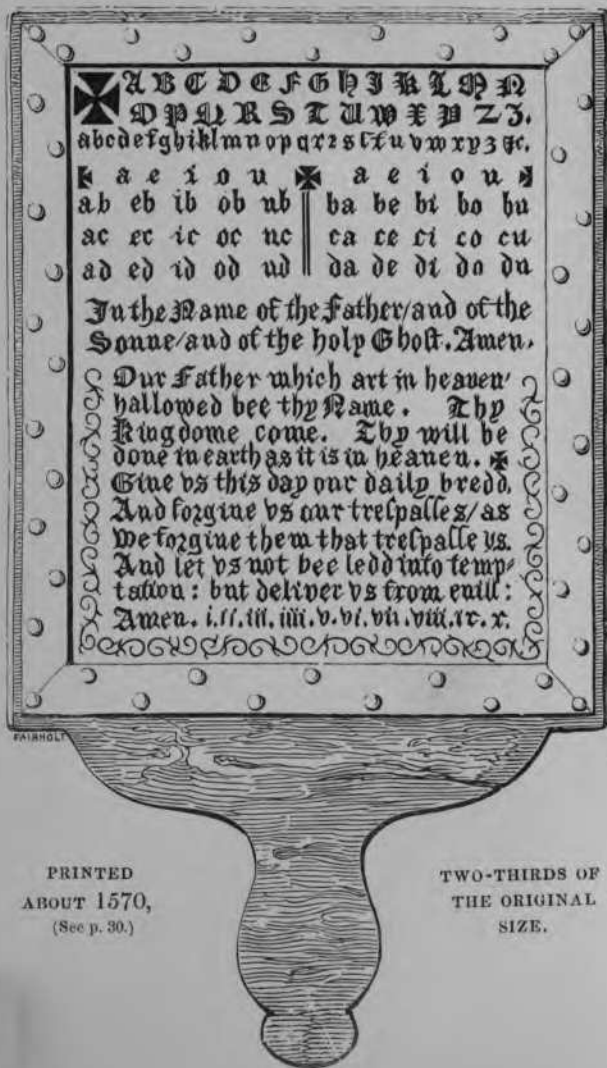 ✠ A B C D E F G H J K L M N
O P Q R S T U W X Y Z 3.
abcdefghiklmnopqrꝛsſtuvwxyz ⁊c.
a e i o u ✠ a e i o u
ab eb ib ob ub ba be bi bo bu
ac ec ic oc uc ca ce ci co cu
ad ed id od ud da de di do du
In the Name of the Father/and of the
Sonne/and of the holy Ghoſt. Amen.
Our Father which art in heauen'
hallowed bee thy Name. Thy
Kingdome come. Thy will be
done in earth as it is in heauen. ✠
Giue vs this day our daily bredd.
And forgiue vs our treſpaſſes/as
we forgiue them that treſpaſſe vs.
And let vs not bee ledd into temp⸗
tation: but deliver vs from euill:
Amen. i.ii.iii.iiii.v.vi.vii.viii.ix.x.
FAIRHOLT
PRINTED
ABOUT 1570,
(See p. 30.)
TWO-THIRDS OF
THE ORIGINAL
SIZE.